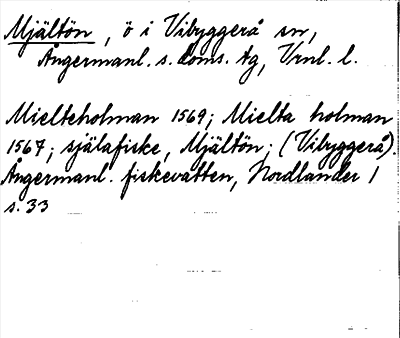 Mjältön, ö i Vibyggerå sn,
Ångermanl. s. doms. tg, Vrnl. l.
Mielteholman 1569; Mielta holman
1567; själafiske, Mjältön; (Vibyggerå).
Ångermanl. fiskevatten, Nordlander 1
s. 33